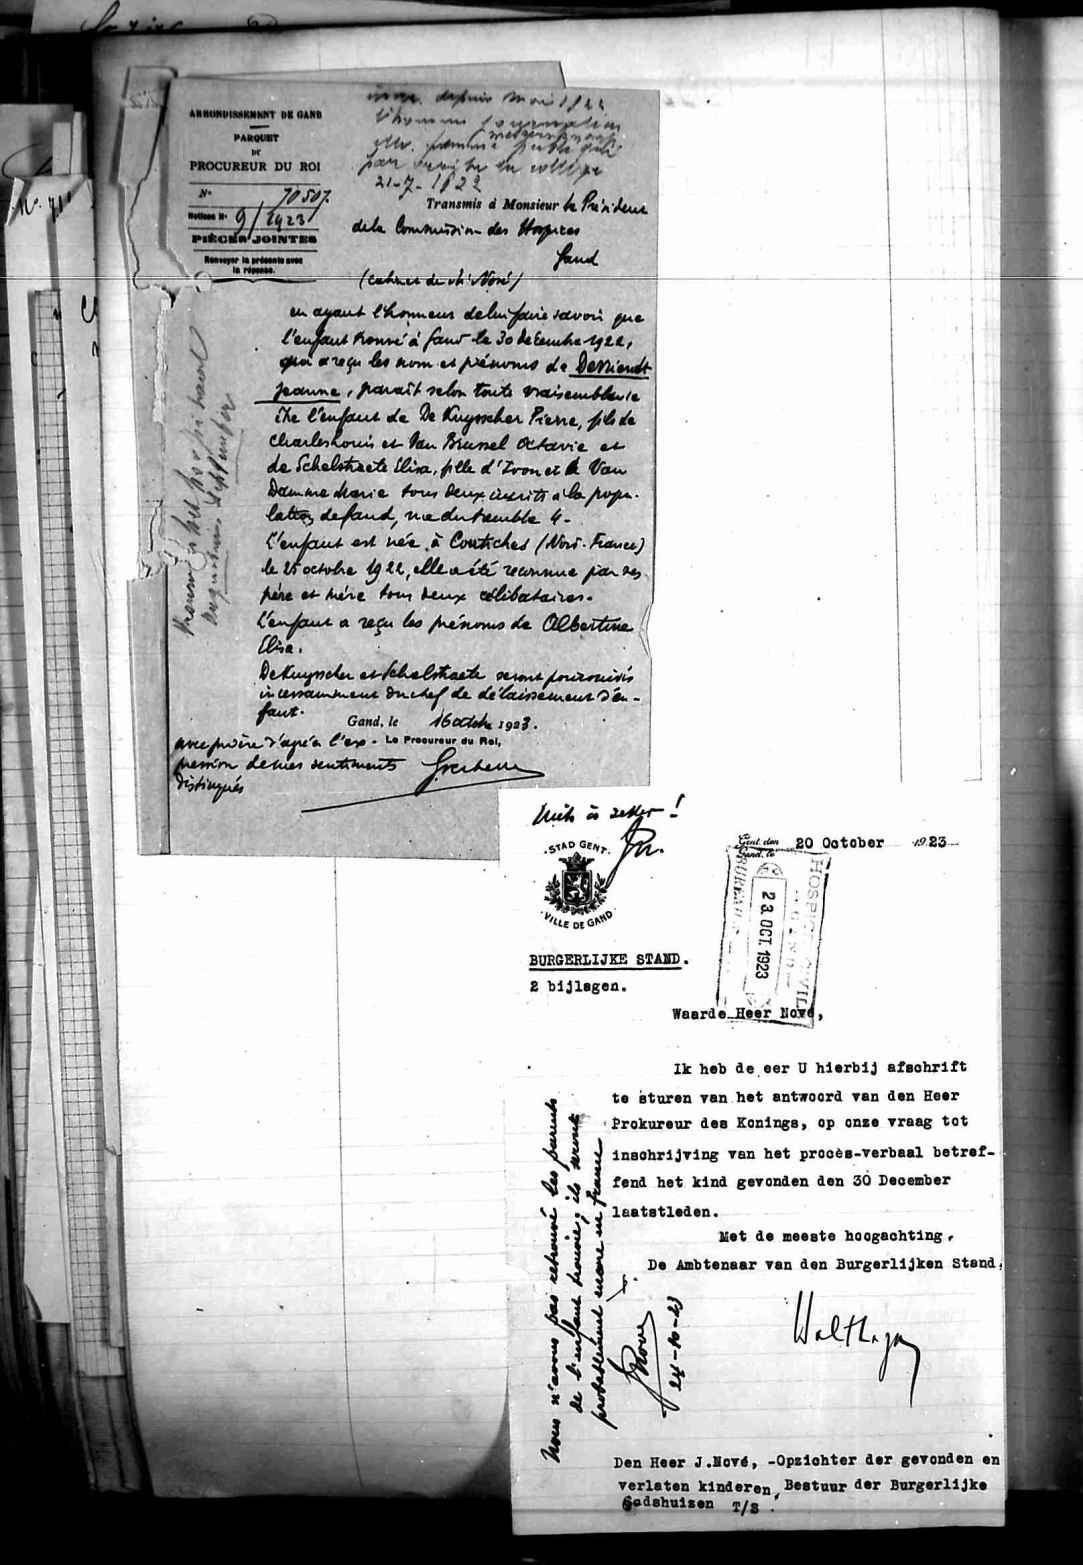 ARRONDISSEMENT DE GAND
PARQUET
DU
PROCUREUR DU ROI
N° 70507.
Notices N° 9/1923
PIÈCES JOINTES
Renvoyer la présente avec
la réponse.
depuis Mai 1922
21-7-1922
Transmis à Monsieur le Président
de la Commission des Hospices
Gand
(cabinet de Mr Nové)
en ayant l'honneur de lui faire savoir que
l'enfant trouvé à Gand le 30 décembre 1922,
qui a reçu les nom et prénoms de Derriendt
Jeanne, paraît selon toute vraisemblance
être l'enfant de De Kuysscher Pierre, fils de
Charles Louis et Van Brussel Octavie et
de Schelstraete Elisa, fille d'Ivon et de Van
Damme Marie tous deux inscrits à la popu-
lation de Gand, rue du tremble 4-
L'enfant est née à Coutiches (Nord-France)
le 25 octobre 1922, elle a été reconnue par ses
père et mère tous deux célibataires.
L'enfant a reçu les prénoms de Albertine
Elisa.
De Kuysscher et Schelstraete seront poursuivis
incessamment du chef de délaissement d'en-
fant.
Gand, le 16 octobre 1923.
avec prière d'agréer l'ex- Le Procureur du Roi,
pression de mes sentiments
distingués
Niets is zeker!
STAD GENT
VILLE DE GAND
Gent, den
Gand, le 20 October 1923
HOSPICES CIVILS
GAND
BUREAU
23 OCT. 1923
BURGERLIJKE STAND.
2 bijlagen.
Waarde Heer Nové,
Ik heb de eer U hierbij afschrift
te sturen van het antwoord van den Heer
Prokureur des Konings, op onze vraag tot
inschrijving van het procès-verbaal betref-
fend het kind gevonden den 30 December
laatstleden.
Met de meeste hoogachting,
De Ambtenaar van den Burgerlijken Stand,
Nous n'avons pas retrouvé les parents
de l'enfant trouvée; ils seront
probablement encore en france
JNové
24-10-23
Den Heer J.Nové, -Opzichter der gevonden en
verlaten kinderen, Bestuur der Burgerlijke
Godshuizen T/S.